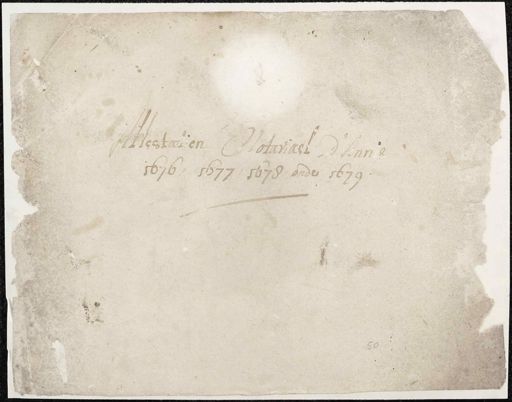 Attestatien Notariael D'Anno
1676, 1677 1678 ende 1679.
50